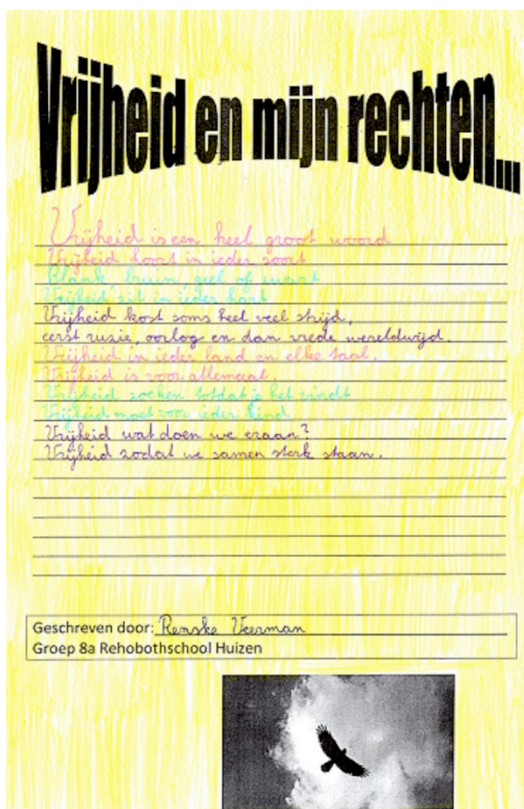 Vrijheid en mijn rechten...
Vrijheid is een heel groot woord
Vrijheid hoort in ieder soort
Blank, bruin, geel of zwart
Vrijheid zit in ieder hart
Vrijheid kost soms heel veel strijd,
eerst ruzie, oorlog en dan vrede wereldwijd
Vrijheid in ieder land en elke taal.
Vrijheid is voor allemaal.
Vrijheid zoeken totdat je het vindt
Vrijheid moet voor ieder kind
Vrijheid wat doen we eraan?
Vrijheid zodat we samen sterk staan.
Geschreven door: Renske Veerman
Groep 8a Rehobothschool Huizen